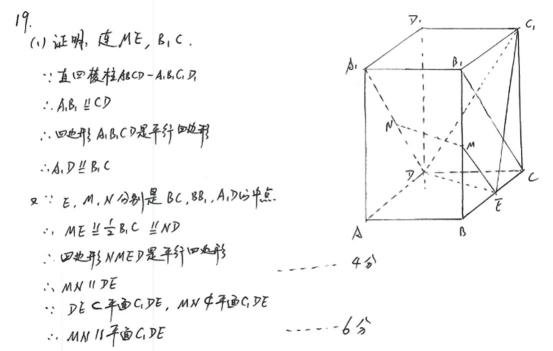 19.
(1) 证明: 连ME, B₁C.
∵ 直四棱柱ABCD-A₁B₁C₁D₁
∴ A₁B₁ ∥= CD
∴ 四边形A₁B₁CD是平行四边形
∴ A₁D ∥= B₁C
又∵ E, M, N分别是BC, BB₁, A₁D的中点.
∴ ME ∥= ½B₁C ∥= ND
∴ 四边形NMED是平行四边形
∴ MN ∥ DE ------ 4分
∵ DE ⊂ 平面C₁DE, MN ⊄ 平面C₁DE
∴ MN ∥ 平面C₁DE ------ 6分
D₁
C₁
A₁
B₁
N
M
D
C
E
A
B